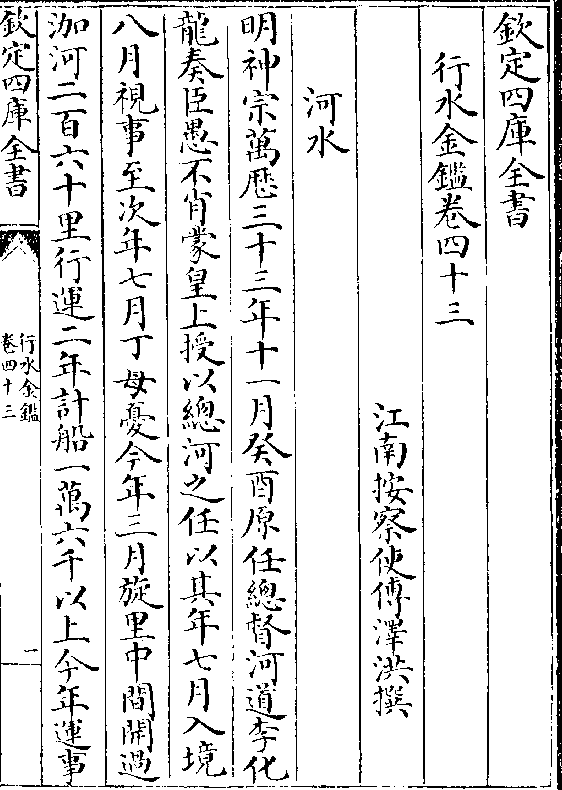 欽定四庫全書
行水金鑑卷四十三
江南按察使傅澤洪撰
河水
明神宗萬厯三十三年十一月癸酉原任總督河道李化
龍奏臣愚不肖蒙皇上授以總河之任以其年七月入境
八月視事至次年七月丁母憂今年三月旋里中間開過
泇河二百六十里行運二年計船一萬六千以上今年運事
欽定四庫全書
行水金鑑
卷四十三
一